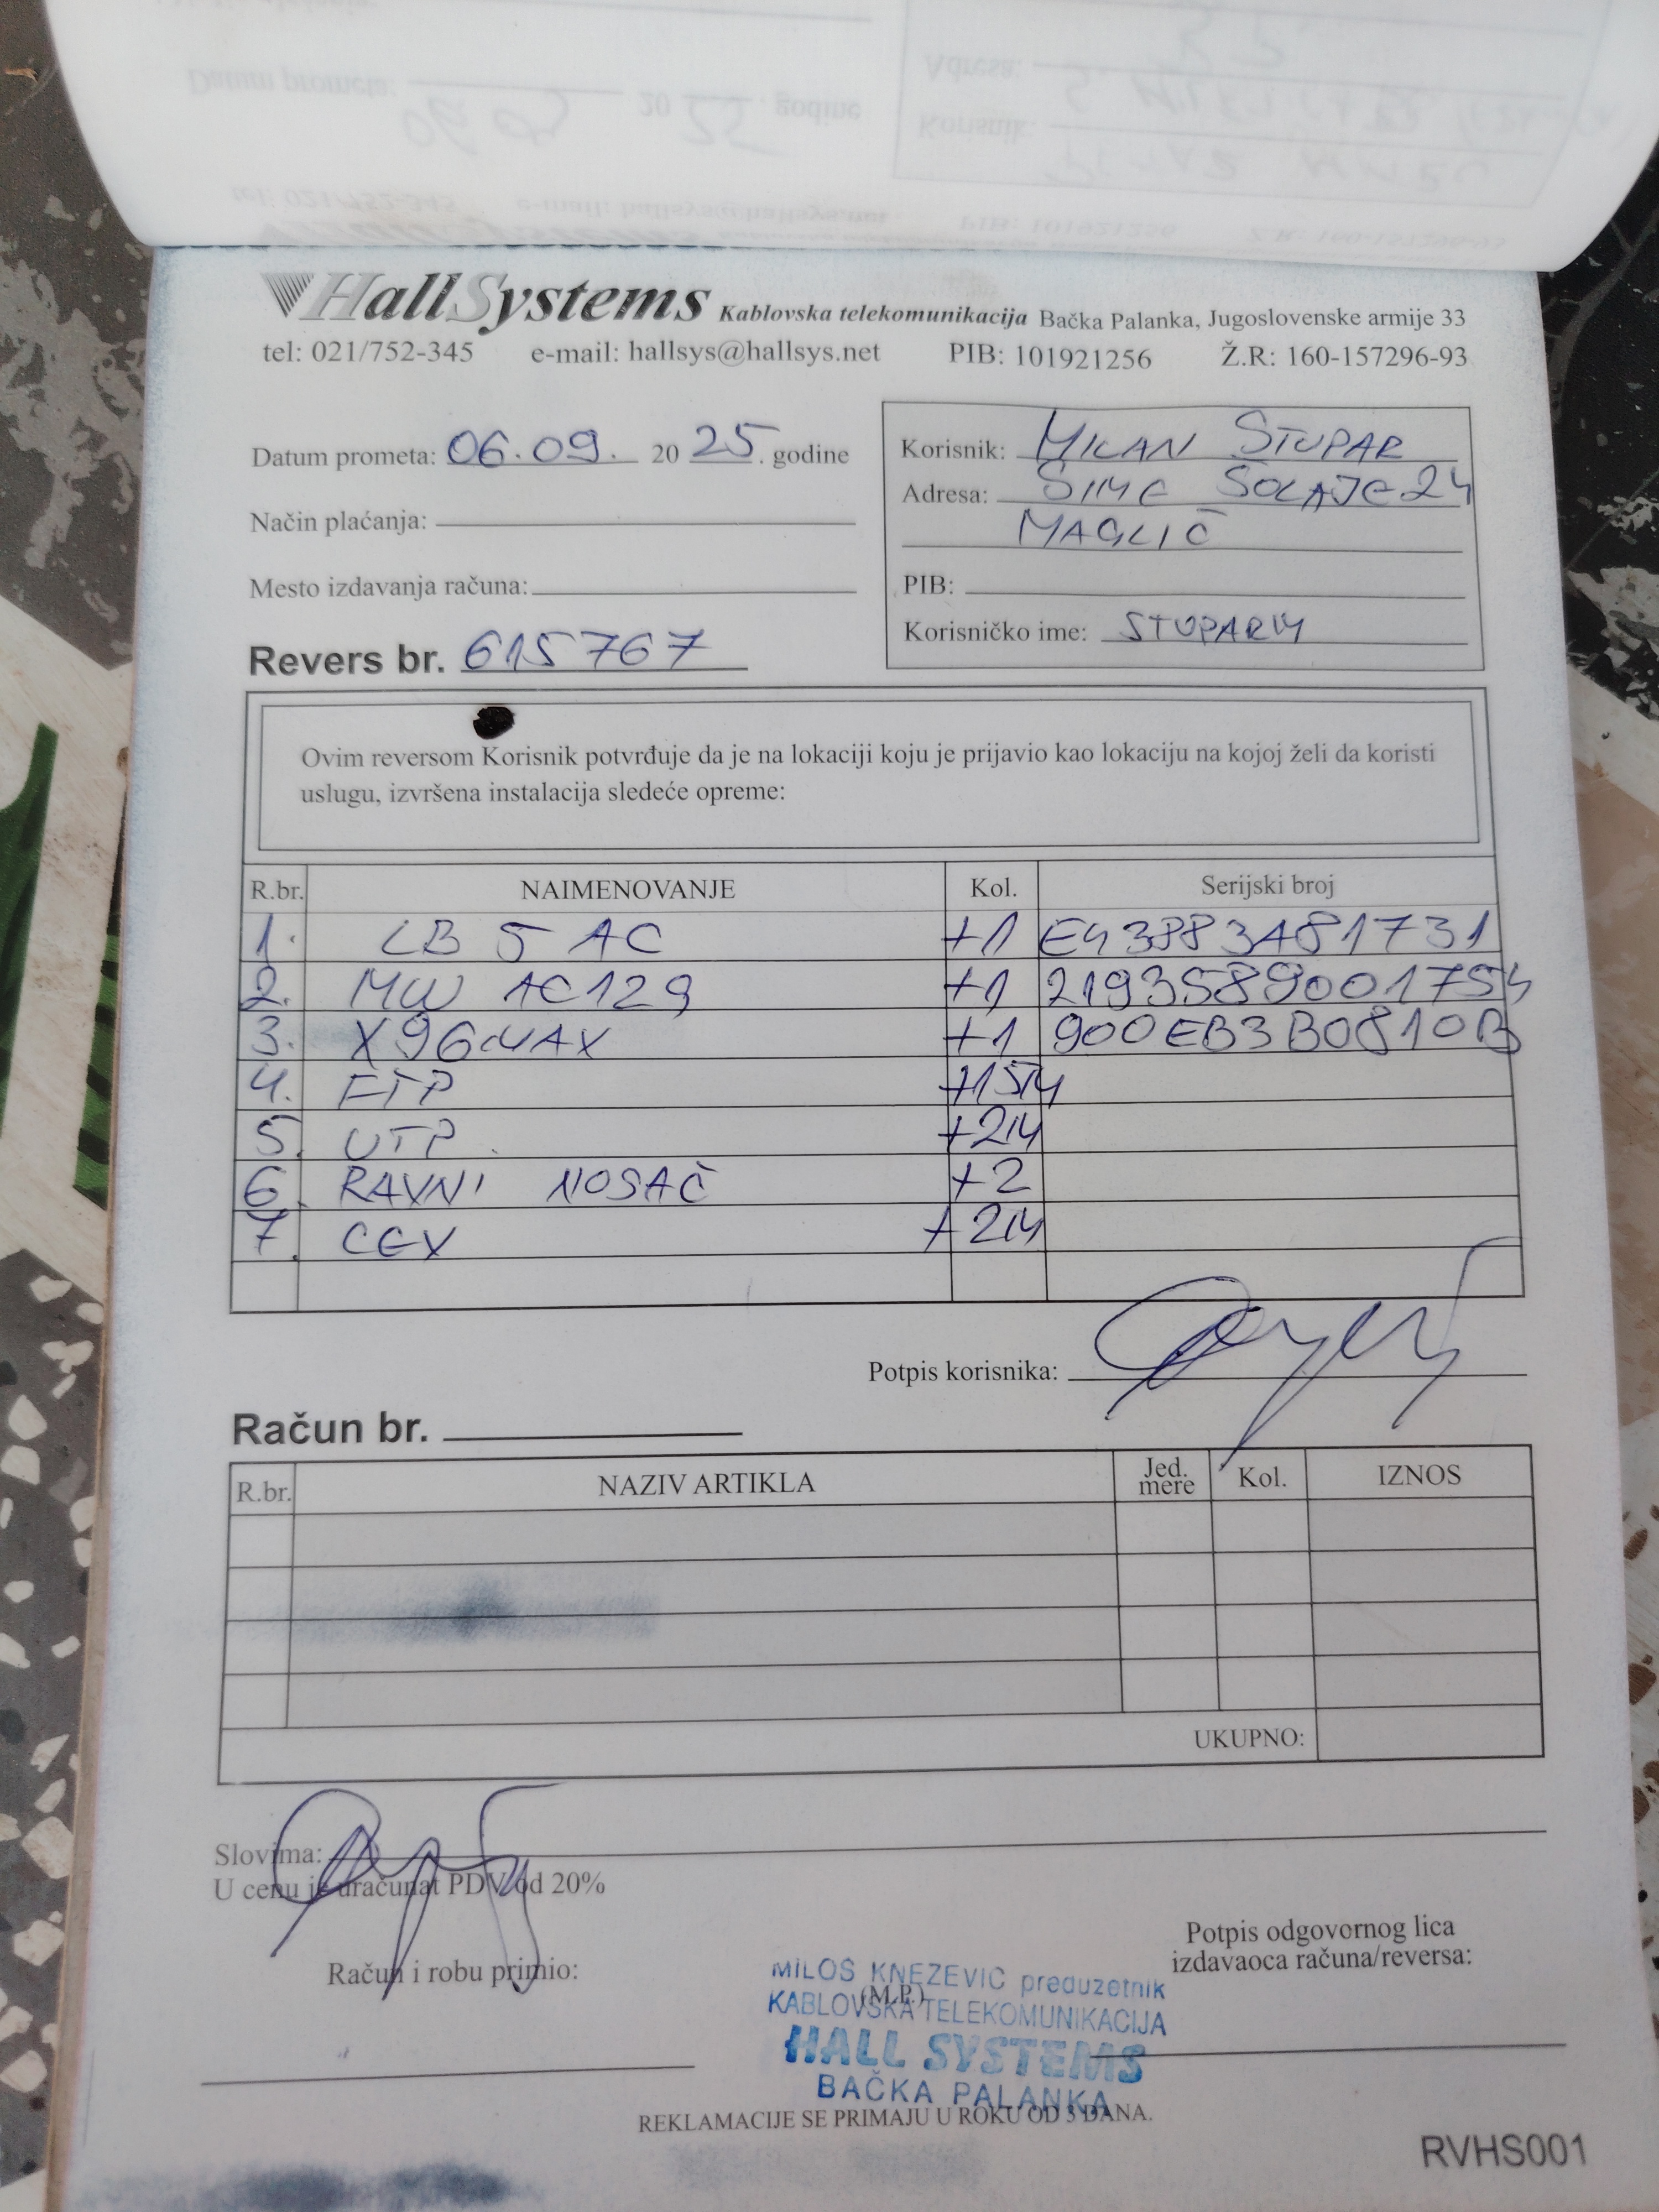 HallSystems Kablovska telekomunikacija Bačka Palanka, Jugoslovenske armije 33
tel: 021/752-345 e-mail: hallsys@hallsys.net PIB: 101921256 Ž.R: 160-157296-93
Datum prometa: 06.09. 20 25. godine
Način plaćanja:
Mesto izdavanja računa:
Revers br. 615767
Korisnik: MILAN STUPAR
Adresa: ŠIME ŠOLAJE 24
MAGLIĆ
PIB:
Korisničko ime: STUPARM
Ovim reversom Korisnik potvrđuje da je na lokaciji koju je prijavio kao lokaciju na kojoj želi da koristi
uslugu, izvršena instalacija sledeće opreme:
R.br. NAIMENOVANJE Kol. Serijski broj
1. LB 5 AC +1 E43883A81731
2. MW AC12G +1 2193589001754
3. X96MAX +1 900EB3B0810B
4. FTP +15M
5. UTP +2M
6. RAVNI NOSAČ +2
7. CEV +2M
Potpis korisnika:
Račun br.
R.br. NAZIV ARTIKLA Jed. mere Kol. IZNOS
UKUPNO:
Slovima:
U cenu je uračunat PDV od 20%
Račun i robu primio:
Potpis odgovornog lica
izdavaoca računa/reversa:
MILOŠ KNEŽEVIĆ preduzetnik
(M.P.)
KABLOVSKA TELEKOMUNIKACIJA
HALL SYSTEMS
BAČKA PALANKA
REKLAMACIJE SE PRIMAJU U ROKU OD 3 DANA.
RVHS001